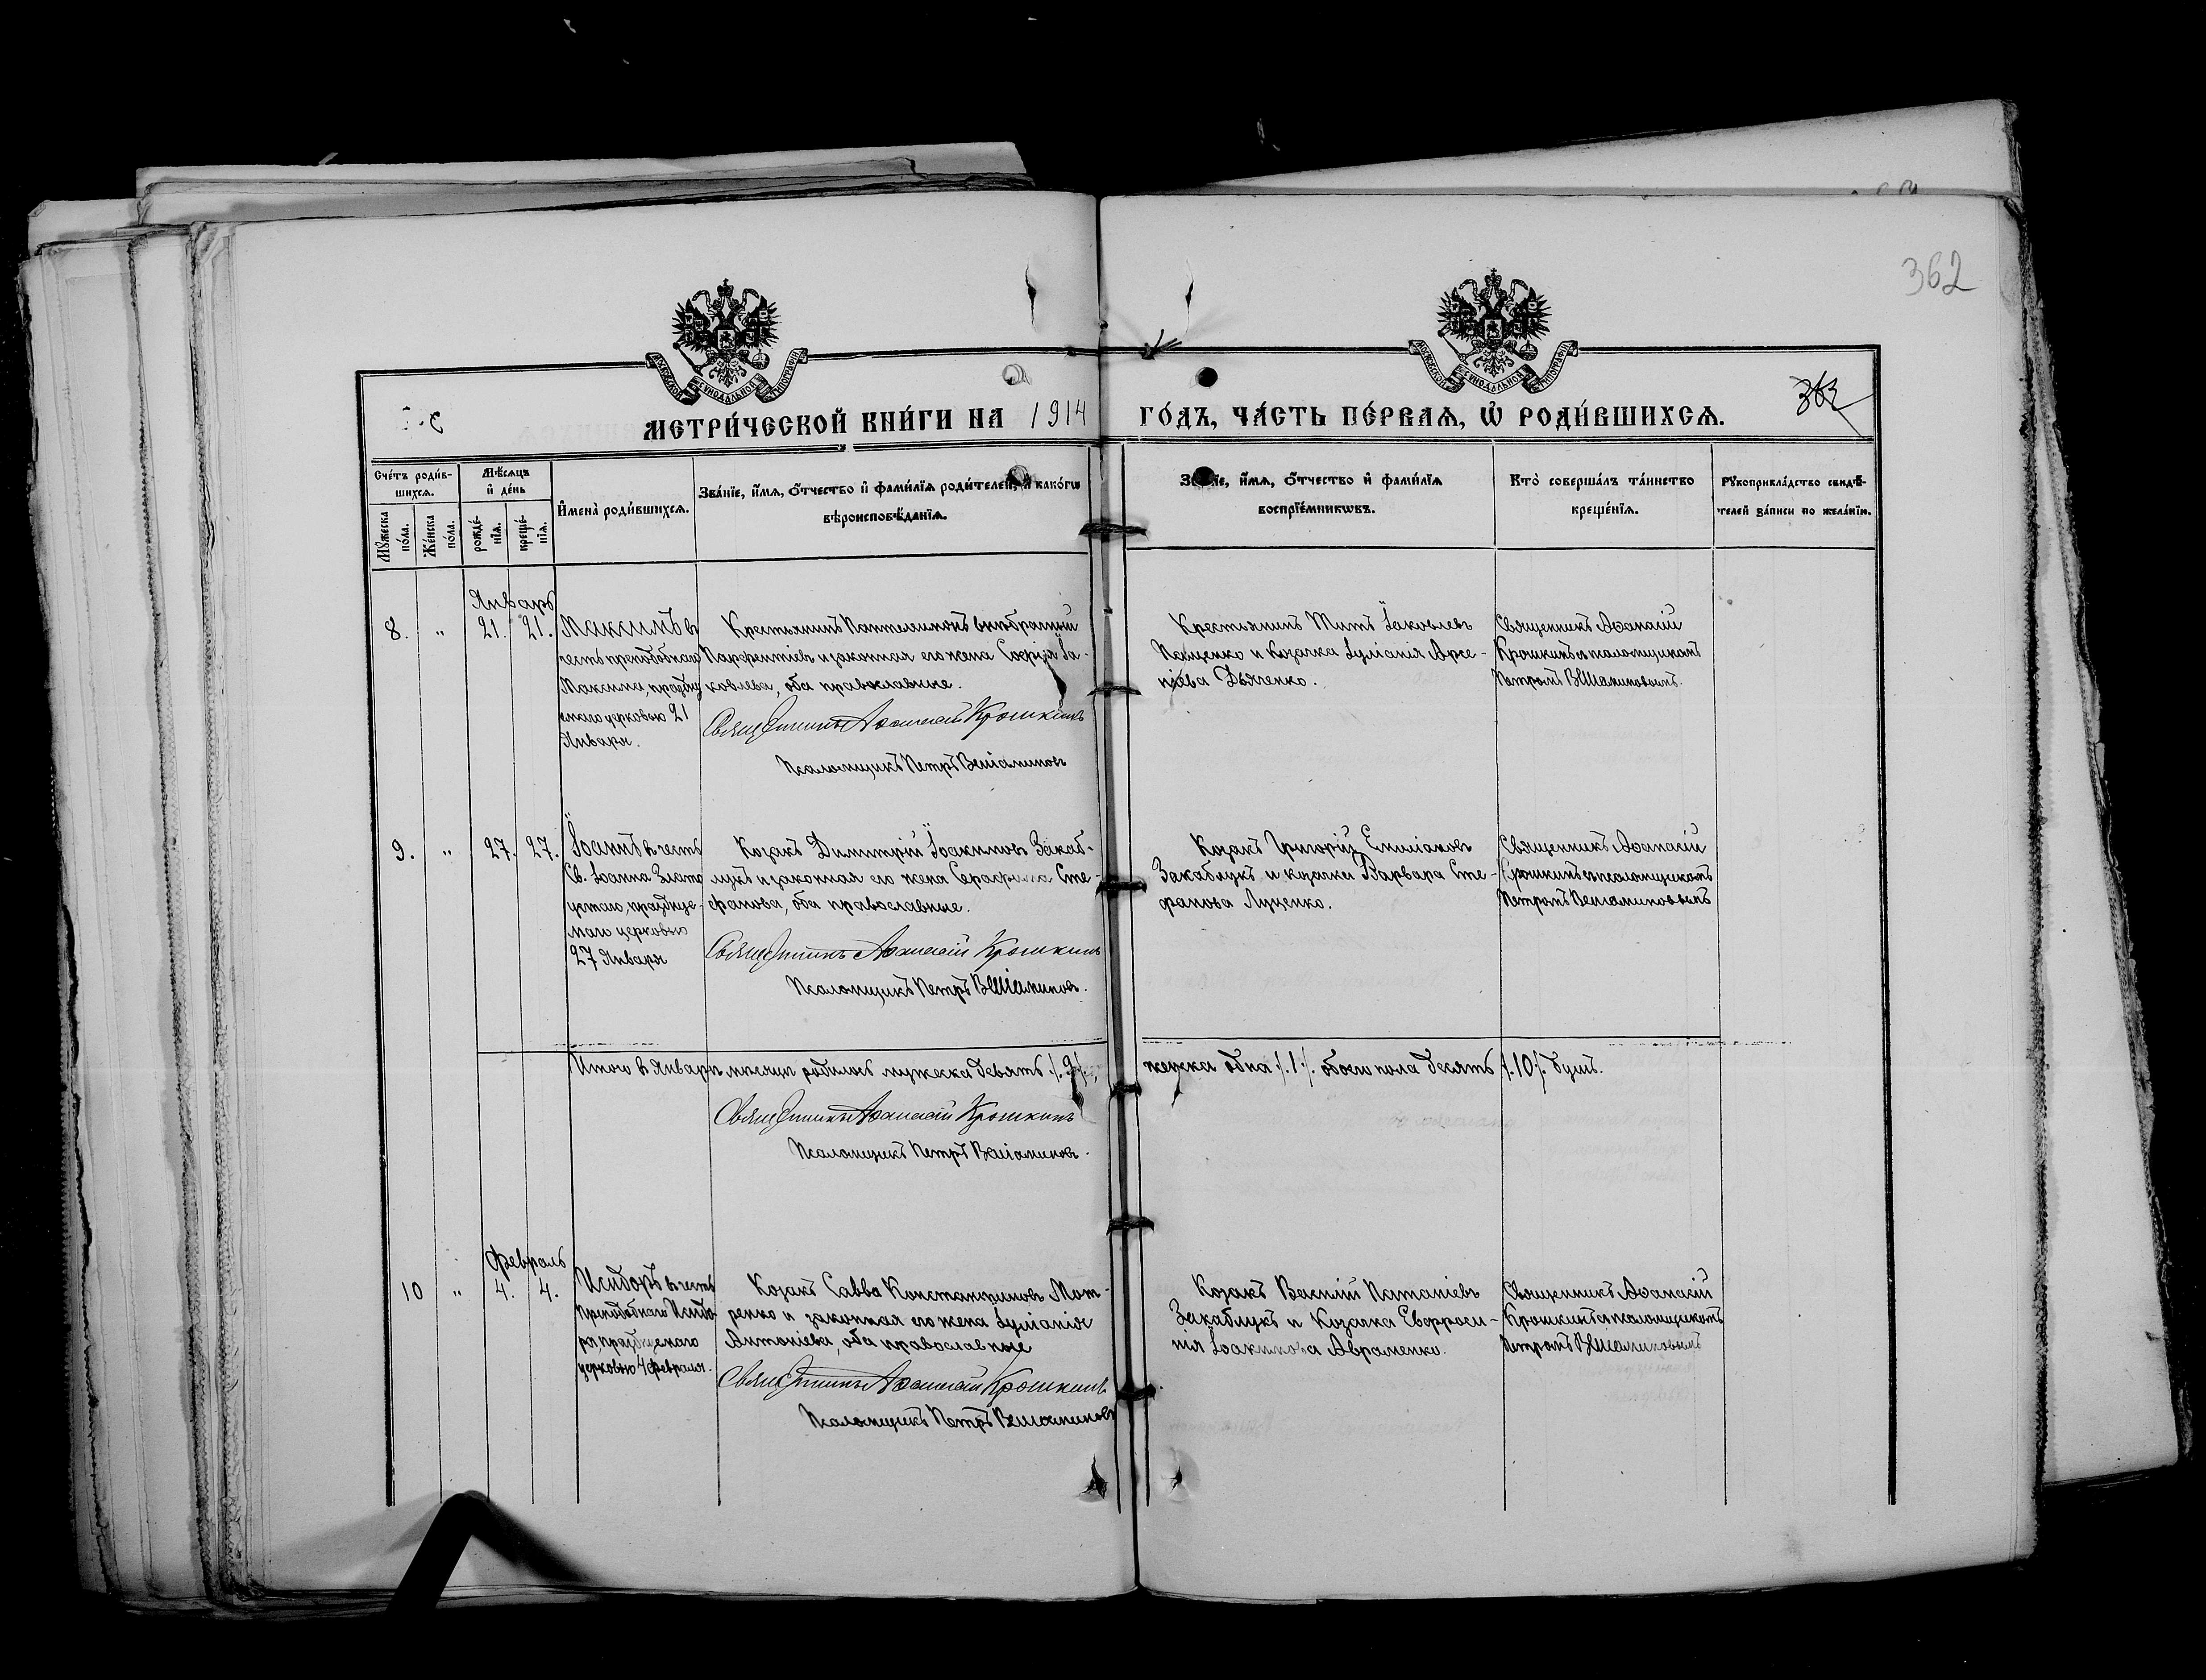 362
МОСКОВСКОЙ СѴНОДАЛЬНОЙ ТИПОГРАФІИ
МОСКОВСКОЙ СѴНОДАЛЬНОЙ ТИПОГРАФІИ
МЕТРИ́ЧЕСКОЙ КНИ́ГИ НА 1914 ГО́ДЪ, ЧА́СТЬ ПЕ́РВАѦ, Ѡ҆ РОДИ́ВШИХСѦ.
363
Сче́тъ роди́в-
шихсѧ.
Мѣ́сѧцъ
и҆ де́нь
И҆мена̀ роди́вшихсѧ.
Зва́нїе, и҆́мѧ, ѻ҆́тчество и҆ фами́лїѧ роди́телей, и҆ како́гѡ
вѣроисповѣ́данїѧ.
Зва́нїе, и҆́мѧ, ѻ҆́тчество и҆ фами́лїѧ
воспрїе́мникѡвъ.
Кто̀ соверша́лъ та́инство
креще́нїѧ.
Рꙋкоприкла́дство свидѣ́-
телей за́писи по жела́нїю.
Мꙋ́жеска
по́ла.
Же́нска
по́ла.
рожде́-
нїѧ.
креще́-
нїѧ.
Январь
8. " 21. 21. Максимъ въ
честь преподобнаго
Максима, праздну
емаго церковью 21
Января.
Крестьянинъ Пантелимонъ
Парфентіевъ и законная его жена Софія Іа-
ковлева, оба православные.
Священникъ Аѳанасій Крошкинъ
Псаломщикъ Петръ Веніаминовъ
Крестьянинъ Титъ Іаковлевъ
Пащенко и козачка Іуліанія Арсе-
ніева Дьяченко.
Священникъ Аѳанасій
Крошкинъ съ псаломщикомъ
Петромъ Веніаминовымъ.
9. " 27. 27. Іоаннъ въ честь
Св. Іоанна Злато
устаго, празднуе-
маго церковью
27 Января
Козакъ Димитрій Іоакимовъ Закаб-
лукъ и законная его жена Серафима Сте-
фанова, оба православные.
Священникъ Аѳанасій Крошкинъ
Псаломщикъ Петръ Веніаминовъ.
Козакъ Григорій Емиліановъ
Закаблукъ и козачка Варвара Сте-
фанова Луценко.
Священникъ Аѳанасій
Крошкинъ съ псаломщикомъ
Петромъ Веніаминовымъ
Итого въ Январѣ мѣсяцѣ родилось мужеска девять /.9/., женска одна /.1/. обоего пола десять /.10/. душъ.
Священникъ Аѳанасій Крошкинъ
Псаломщикъ Петръ Веніаминовъ.
Февраль
10 " 4. 4. Исидоръ въ честь
Преподобнаго Исидо-
ра, празднуемаго
церковью 4 февраля.
Козакъ Савва Константиновъ Мот-
ренко и законная его жена Іуліанія
Антоніева, оба православные
Священникъ Аѳанасій Крошкинъ
Псаломщикъ Петръ Веніаминовъ
Козакъ Василій Натаніевъ
Закаблукъ и Козачка Евфроси-
нія Іоакимова Авраменко.
Священникъ Аѳанасій
Крошкинъ съ псаломщикомъ
Петромъ Веніаминовымъ